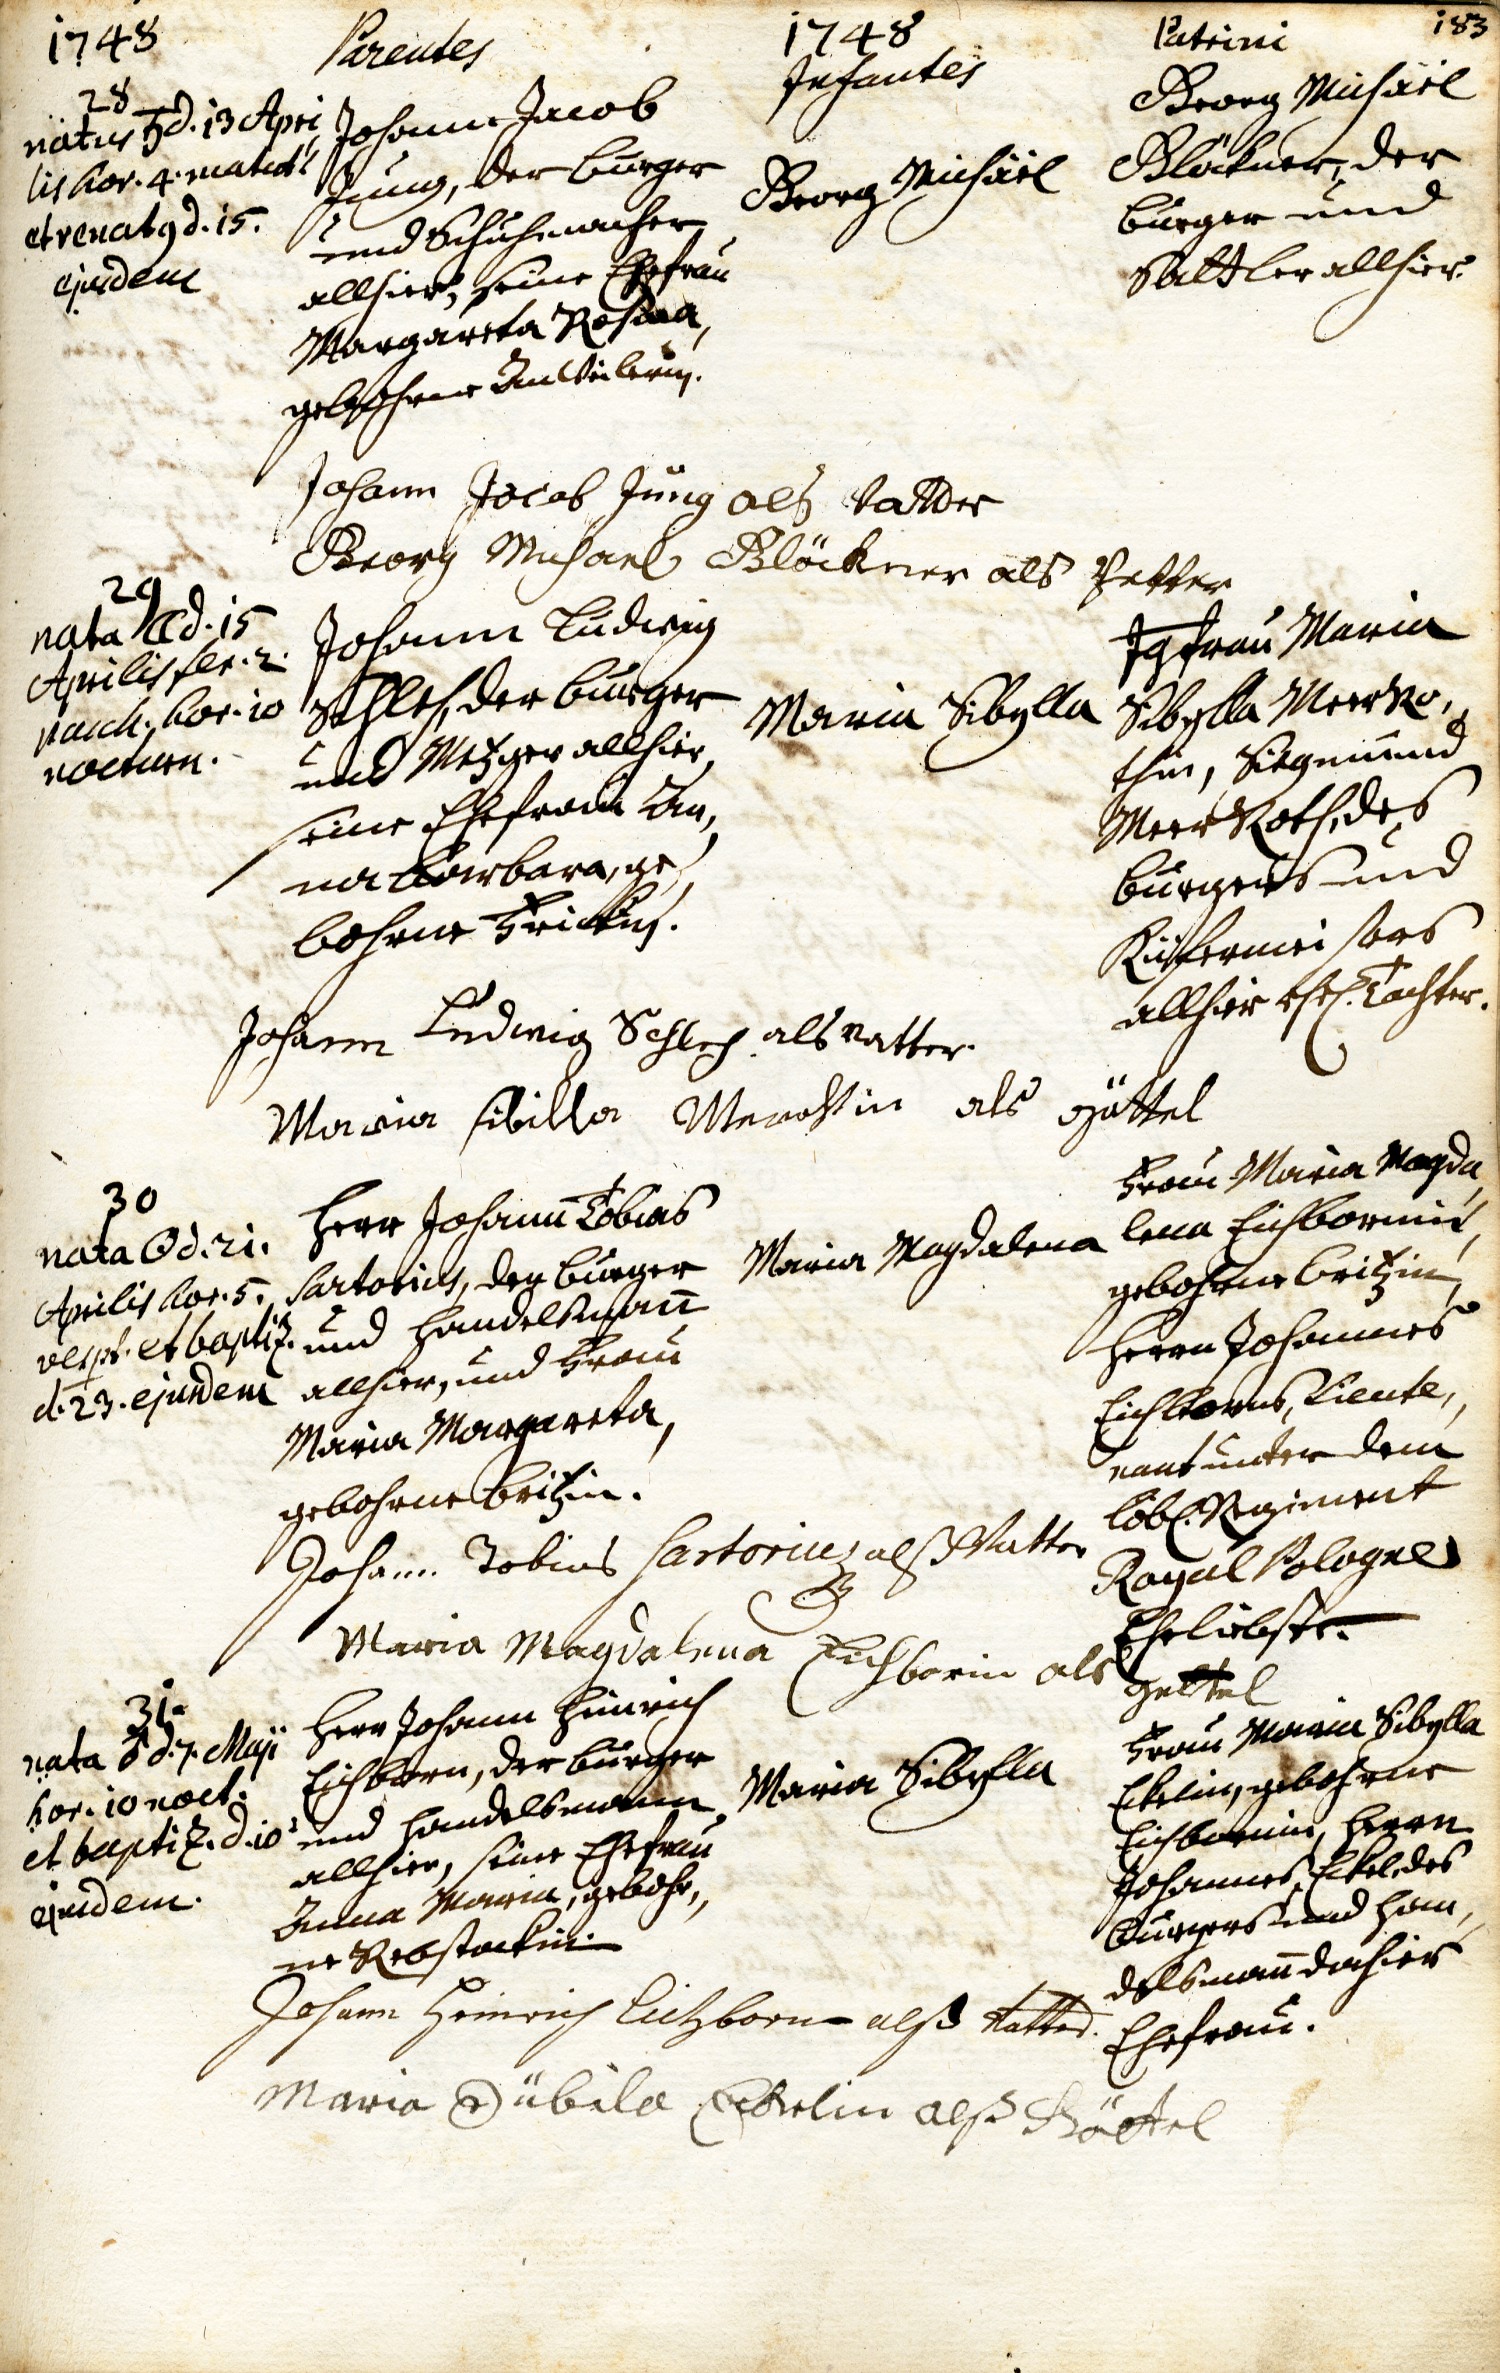 1748 Parentes 1748 Infantes Patrini 183
28
natus ♄ d. 13 Apri
lis hor. 4. matut.
et renatq d. 15.
ejusdem
Johann Jacob
Jung, der burger
und Schuhmacher
allhier, seine Ehefrau
Margareta Rosina,
gebohrne
Georg Michäel
Georg Michäel
Blöckner, der
burger und
Sattler allhier.
Johann Jacob Jung als Vatter
Georg Michael Blöckner als Petter
29
nata ☾ d. 15
Aprilis fer. 2.
pasch. hor. 10
nocturn.
Johann Ludwig
Schlech, der burger
und Metzger allhier,
seine Ehefrau An,
na Barbara, ge,
bohrne Frickin.
Maria Sibylla
Jgfrau Maria
Sibylla Meerro,
thin, Siegmund
Meer Roth, des
burgers und
Küfermeisters
allhier ehel. Tochter.
Johann Ludwig Schlech als vatter.
Maria sibilla Merohtin als göttel
30
nata ☉ d. 21.
Aprilis hor. 5.
vesp. et baptiz.
d. 23. ejusdem
Herr Johann Tobias
Sartorius, der burger
und handelsmann
allhier, und Frau
Maria Margareta,
gebohrne britzin.
Maria Magdalena
Frau Maria Magda,
lena Eichbornin,
gebohrne britzin,
Herrn Johannes
Eichborns, Lieute,
nant unter dem
löbl. Regiment
Royal Pologne
Eheliebste.
Johann Tobias Sartorius alß Vatter
Maria Magdalena Eichborin als gettel
31.
nata ♂ d. 7. Maji
hor. 10 noct.
et baptiz. d. 10
ejusdem.
Herr Johann Heinrich
Eichborn, der burger
und handelsmann
allhier, seine Ehefrau
Anna Maria, gebohr,
ne Rebstockin.
Maria Sibylla
Frau Maria Sibylla
Ekelin, gebohrne
Eichbornin, Herrn
Johannes Ekel, des
burgers und Han,
delsmann dahier
Ehefrau.
Johann Heinrich Eichborn alß Vatter.
Maria Sübila Eckelin alß Göttel